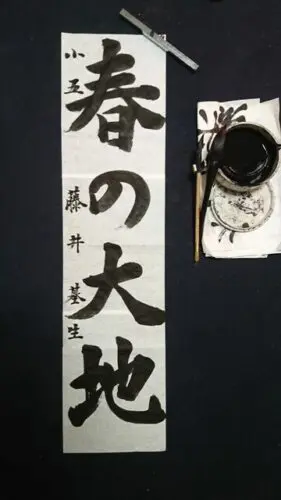 春の大地
小五 藤井基生